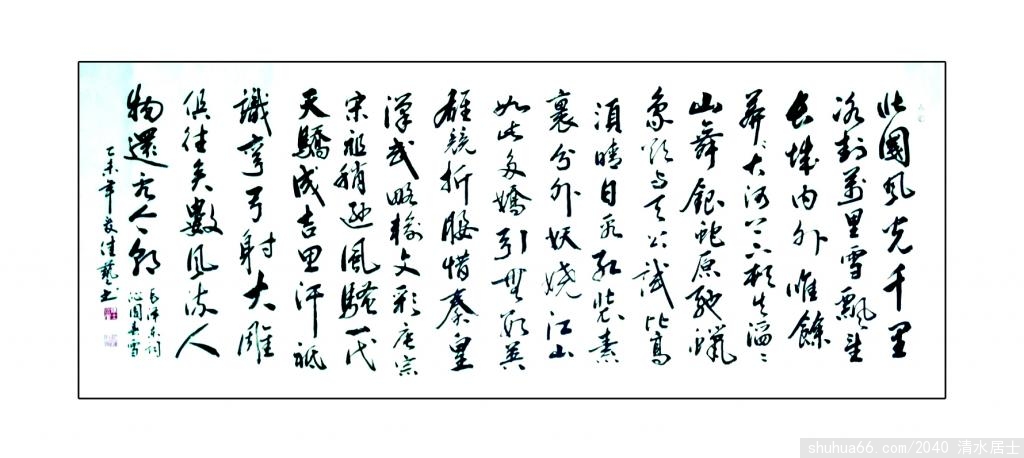 北國風光千里
冰封萬里雪飄望
長城内外惟餘
莽〻大河上下頓失滔〻
山舞銀蛇原馳蠟
象欲與天公試比高
須晴日看紅裝素
裹分外妖嬈江山
如此多嬌引無數英
雄競折腰惜秦皇
漢武略輸文彩唐宗
宋祖稍遜風騷一代
天驕成吉思汗祇
識彎弓射大雕
俱往矣數風流人
物還看今朝
毛澤東詞
沁園春雪
乙未年 佳藝書
shuhua66.com/2040 清水居士